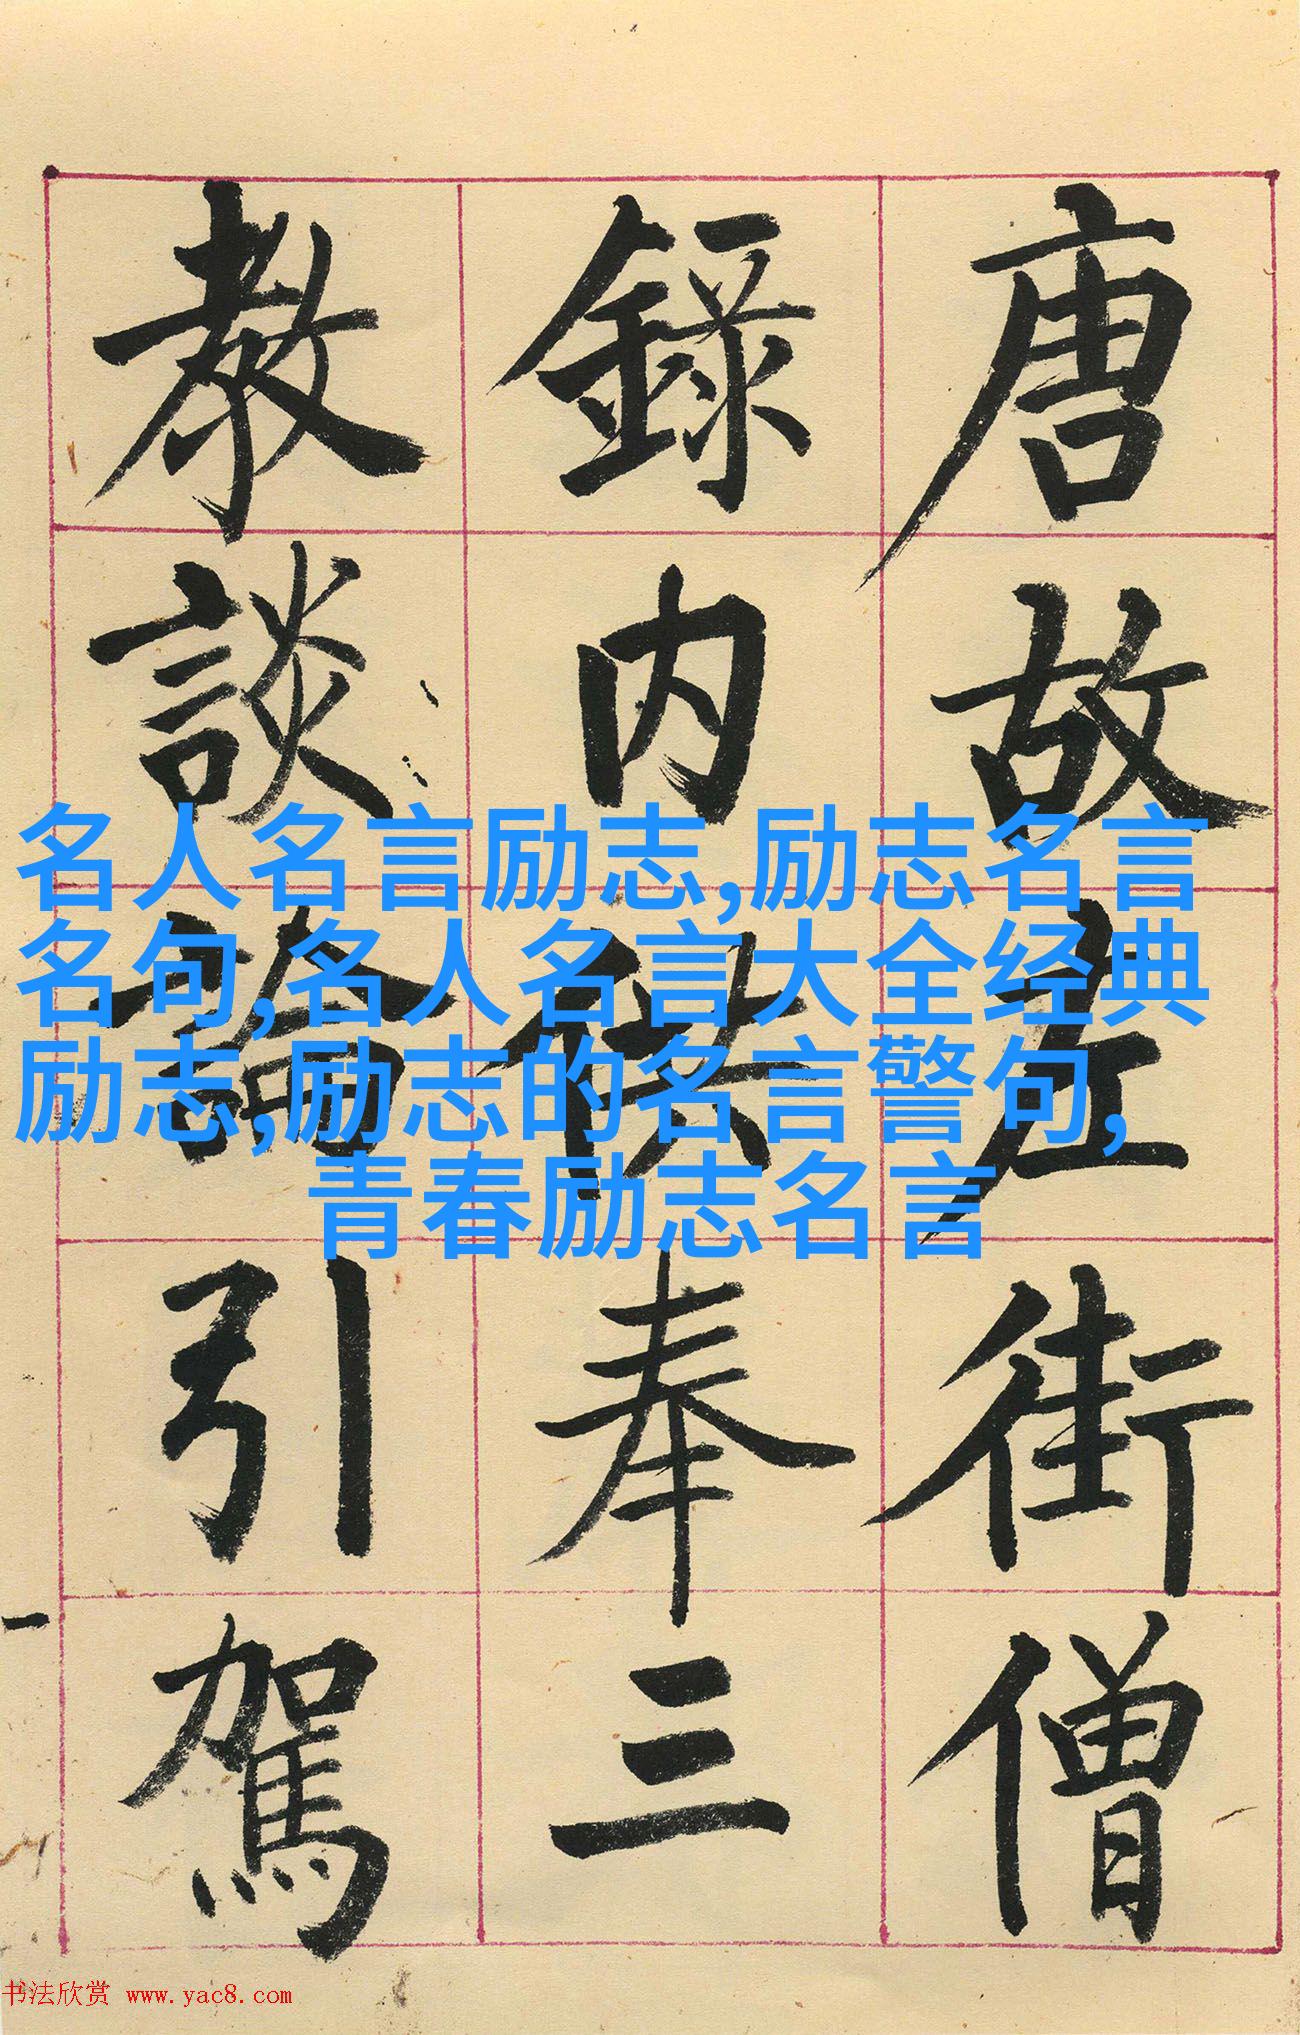 唐故左街僧
錄内供奉三
教談論引駕
名人名言励志,励志名言
名句,名人名言大全经典
励志,励志的名言警句,
青春励志名言
书法欣赏 www.yac8.com